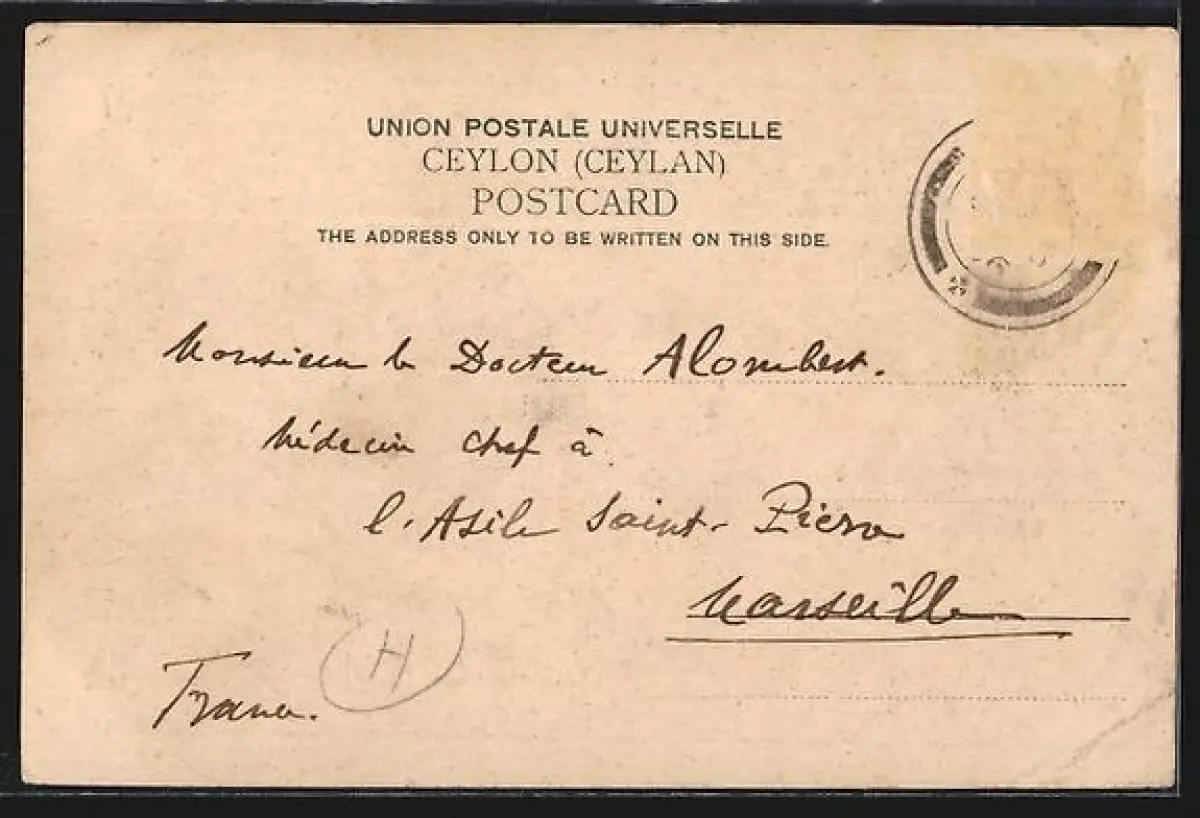 UNION POSTALE UNIVERSELLE
CEYLON (CEYLAN)
POSTCARD
THE ADDRESS ONLY TO BE WRITTEN ON THIS SIDE.
Monsieur le Docteur Alombert.
Médecin chef à
l'Asile Saint-Pierre
Marseille
France.
H